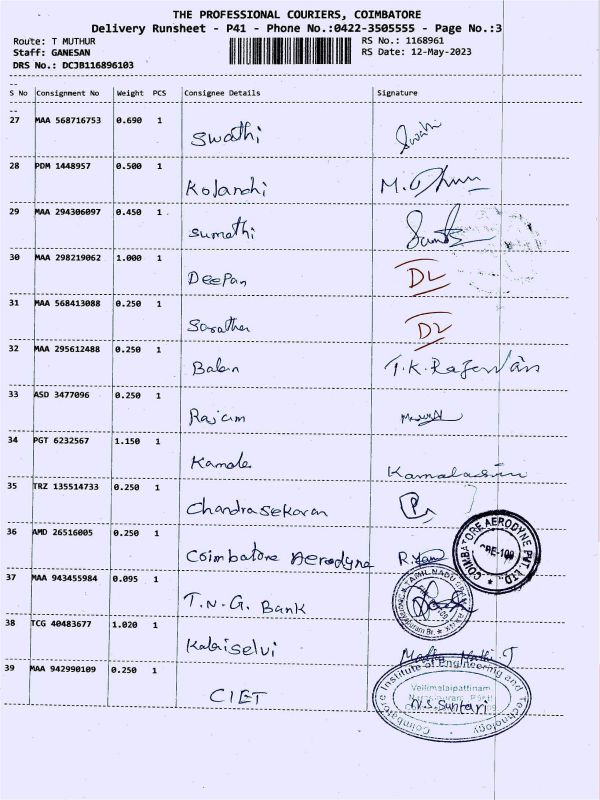 THE PROFESSIONAL COURIERS, COIMBATORE
Delivery Runsheet - P41 - Phone No.:0422-3505555 - Page No.:3
Route: T MUTHUR RS No.: 1168961
Staff: GANESAN RS Date: 12-May-2023
DRS No.: DCJB116896103
S No Consignment No Weight PCS Consignee Details Signature
27 MAA 568716753 0.690 1 Swathi Swathi
28 PDM 1448957 0.500 1 Kolandhi M.
29 MAA 294306097 0.450 1 Sumathi
30 MAA 298219062 1.000 1 Deepan DL
31 MAA 568413088 0.250 1 Sarathan DL
32 MAA 295612488 0.250 1 Balan T.K.
33 ASD 3477096 0.250 1 Rajam
34 PGT 6232567 1.150 1 Kamala
35 TRZ 135514733 0.250 1 Chandrasekaran
36 AMD 26516005 0.250 1 Coimbatore Aerodyne
COIMBATORE AERODYNE PVT. LTD.
37 MAA 943455984 0.095 1 T.N.G. Bank
38 TCG 40483677 1.020 1 Kalaiselvi
39 MAA 942990109 0.250 1 CIET
Coimbatore Institute of Engineering and Technology
Vellimalaipattinam
N.S. Suntari